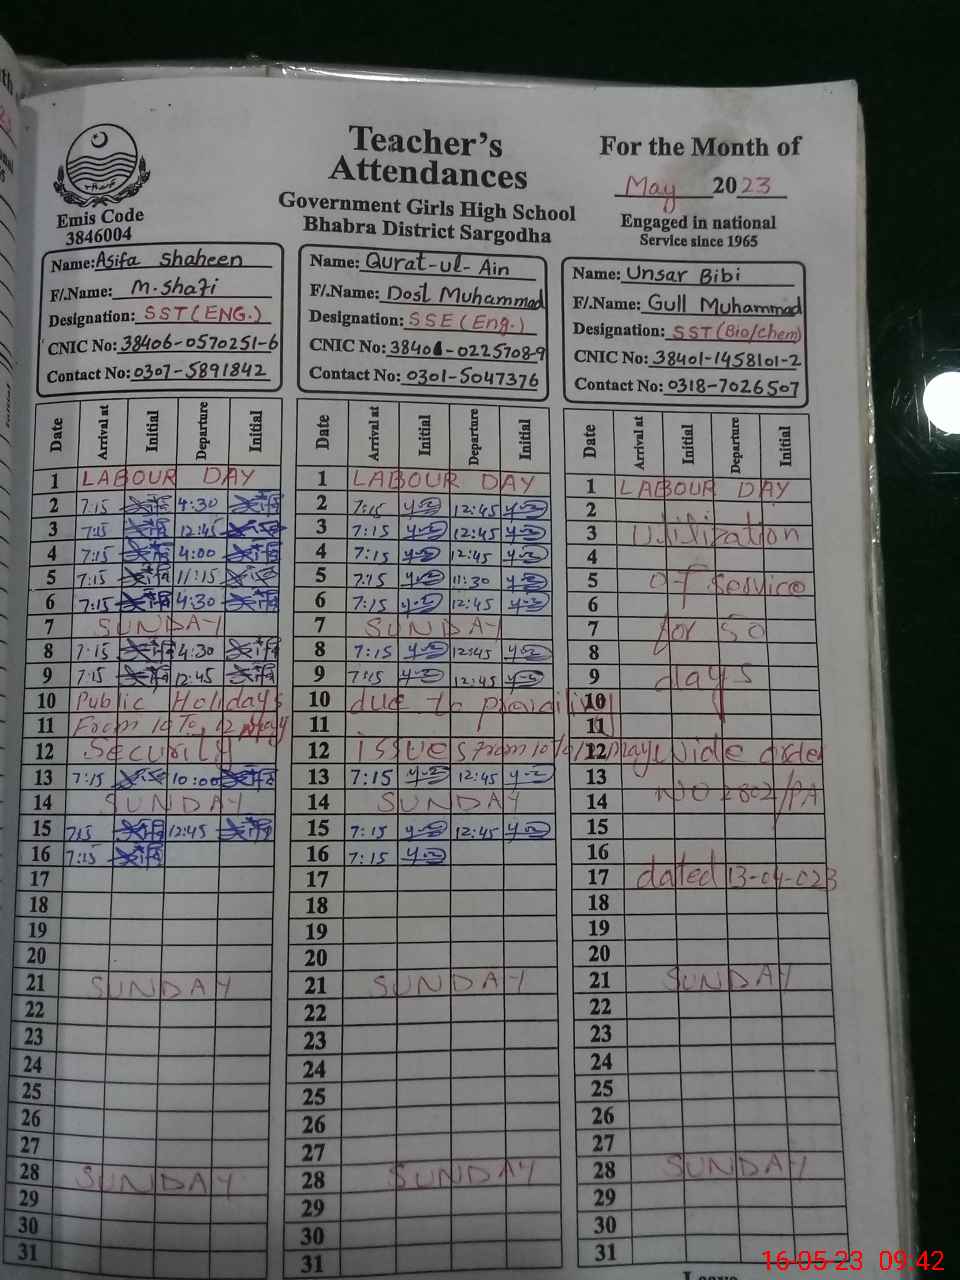 Teacher's
Attendances
Government Girls High School
Bhabra District Sargodha
For the Month of
May 2023
Engaged in national
Service since 1965
Emis Code
3846004
Name: Asifa Shaheen
F/.Name: M.Shafi
Designation: SST(ENG.)
CNIC No: 38406-0570251-6
Contact No: 0307-5891842
Name: Qurat-ul-Ain
F/.Name: Dost Muhammad
Designation: SSE(Eng.)
CNIC No: 38401-0225708-9
Contact No: 0301-5047376
Name: Unsar Bibi
F/.Name: Gull Muhammad
Designation: SST(Bio/chem)
CNIC No: 38401-1458101-2
Contact No: 0318-7026507
Date Arrival at Initial Departure Initial
1 LABOUR DAY
2 7:15 4:30
3 7:15 12:45
4 7:15 4:00
5 7:15 11:15
6 7:15 4:30
7 SUNDAY
8 7:15 4:30
9 7:15 12:45
10 Public Holidays
11 From 10 To 12 May
12 Security
13 7:15 10:00
14 SUNDAY
15 7:15 12:45
16 7:15
17
18
19
20
21 SUNDAY
22
23
24
25
26
27
28 SUNDAY
29
30
31
Date Arrival at Initial Departure Initial
1 LABOUR DAY
2 7:15 12:45
3 7:15 12:45
4 7:15 12:45
5 7:15 11:30
6 7:15 12:45
7 SUNDAY
8 7:15 12:45
9 7:15 12:45
10 due to prevailing
11
12 issues From 10 to 12 May wide order
13 7:15 12:45
14 SUNDAY
15 7:15 12:45
16 7:15
17
18
19
20
21 SUNDAY
22
23
24
25
26
27
28 SUNDAY
29
30
31
Date Arrival at Initial Departure Initial
1 LABOUR DAY
2
3 Utilization
4
5 of Service
6
7 for 50
8
9 days
10
11
12
13
14 NO 2802/PA
15
16
17 dated 13-04-023
18
19
20
21 SUNDAY
22
23
24
25
26
27
28 SUNDAY
29
30
31
Leave
16-05-23 09:42